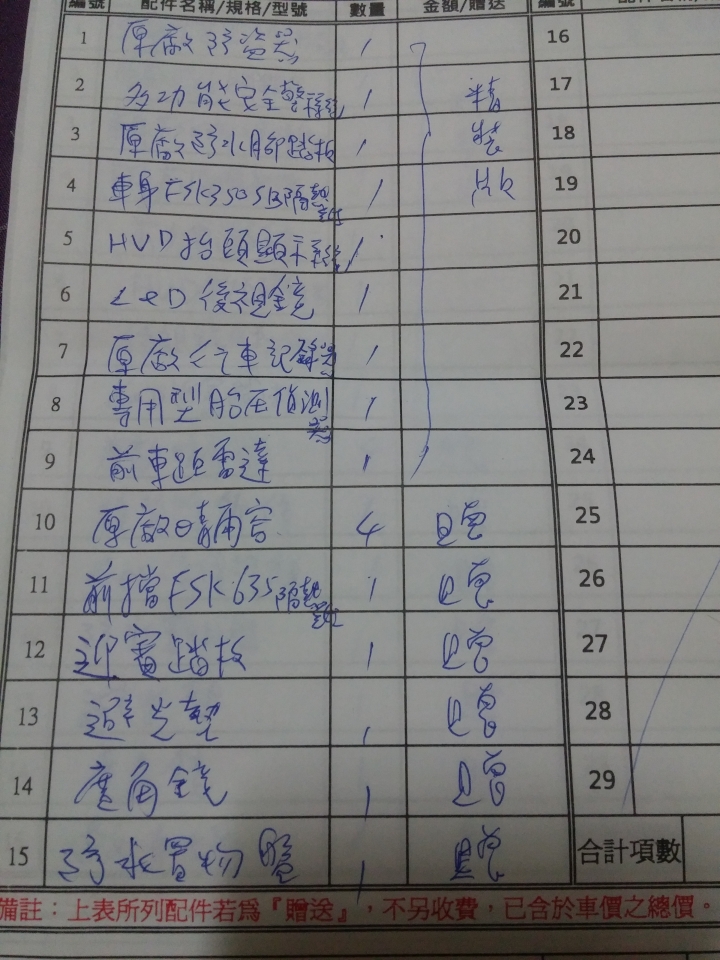 編號 配件名稱/規格/型號 數量 金額/贈送 編號
1 原廠防盜器 1 16
2 多功能安全警示系統 1 精 17
3 原廠防水腳踏板 1 裝 18
4 車身FSK350SB隔熱紙 1 版 19
5 HVD抬頭顯示系統 1 20
6 LED後視鏡 1 21
7 原廠行車記錄器 1 22
8 專用型胎压偵測器 1 23
9 前車距雷達 1 24
10 原廠晴雨窗 4 贈 25
11 前擋FSK635隔熱紙 1 贈 26
12 迎賓踏板 1 贈 27
13 避光墊 1 贈 28
14 廣角鏡 1 贈 29
15 防水置物盤 1 贈 合計項數
備註：上表所列配件若為『贈送』，不另收費，已含於車價之總價。